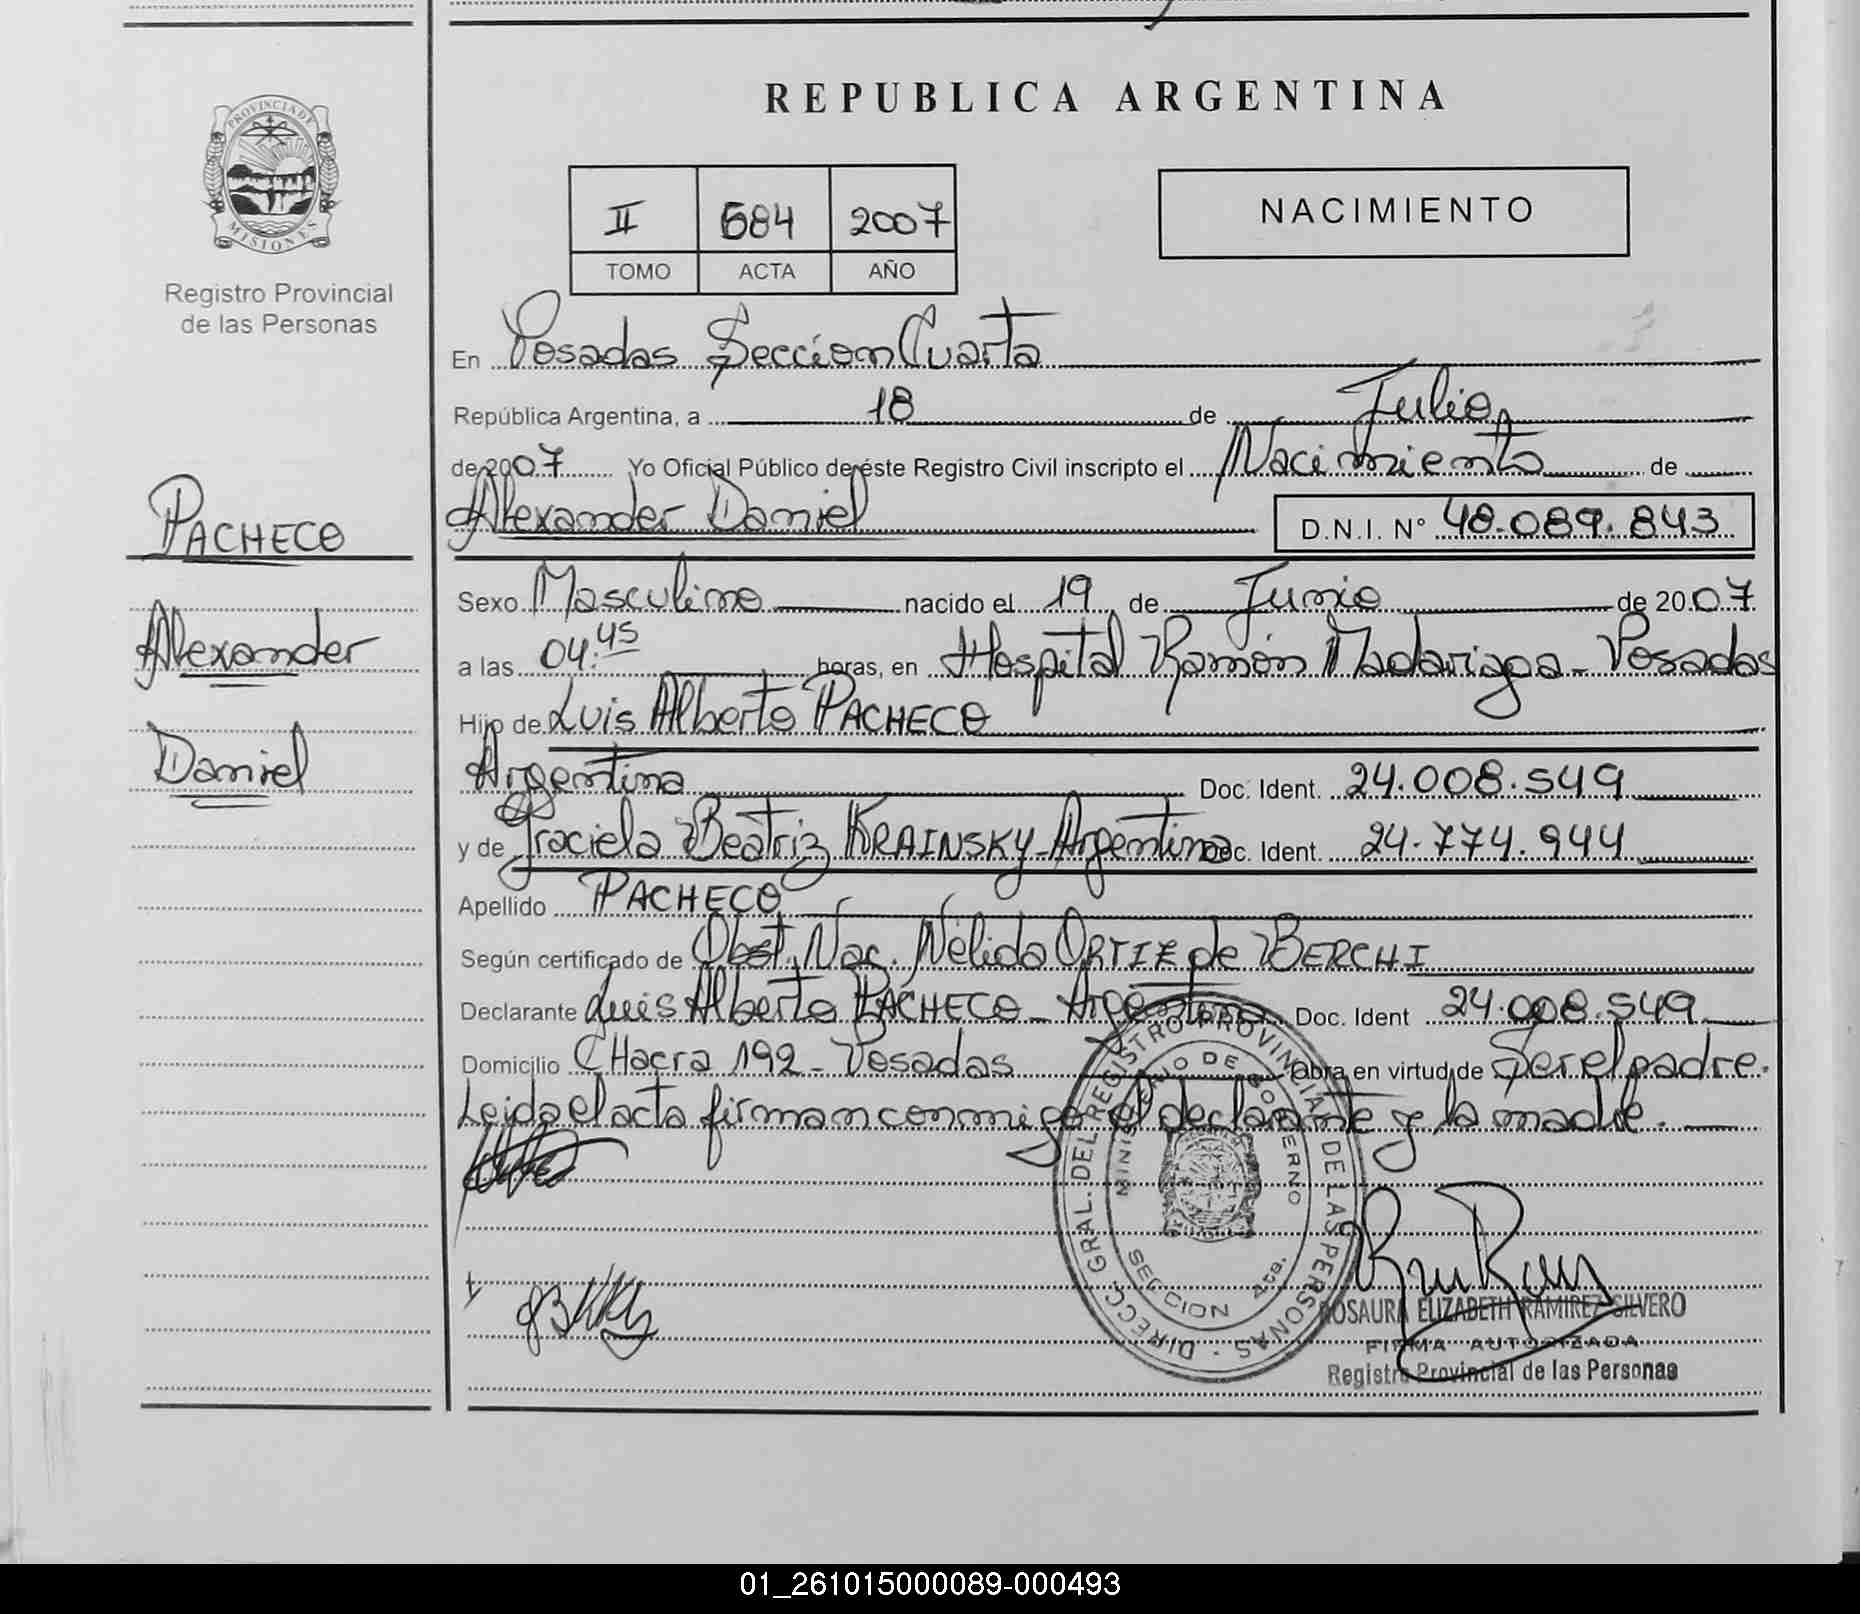 REPUBLICA ARGENTINA
PROVINCIA DE
MISIONES
Registro Provincial
de las Personas
II 684 2007
TOMO ACTA AÑO
NACIMIENTO
En Posadas Sección Cuarta
República Argentina, a 18 de Julio
de 2007 Yo Oficial Público de éste Registro Civil inscripto el Nacimiento de
PACHECO
Alexander Daniel D.N.I. N° 48.089.843
Sexo Masculino nacido el 19 de Junio de 2007
Alexander
a las 04:45 horas, en Hospital Ramón Madariaga - Posadas
Hijo de Luis Alberto PACHECO
Daniel
Argentina Doc. Ident. 24.008.549
y de Graciela Beatriz KRAINSKY - Argentina Doc. Ident. 24.774.944
Apellido PACHECO
Según certificado de Obst. Nac. Nélida ORTIZ de BERCHI
Declarante Luis Alberto PACHECO - Argentina Doc. Ident 24.008.549
Domicilio CHacra 192 - Posadas Obra en virtud de Ser el padre.
Leida el acta firman conmigo el declarante y la madre.
DIRECC. GRAL. DEL REGISTRO PROVINCIAL DE LAS PERSONAS
MINISTERIO DE GOBIERNO
SECCION 4ta.
ROSAURA ELIZABETH RAMIREZ SILVERO
FIRMA AUTORIZADA
Registro Provincial de las Personas
01_261015000089-000493